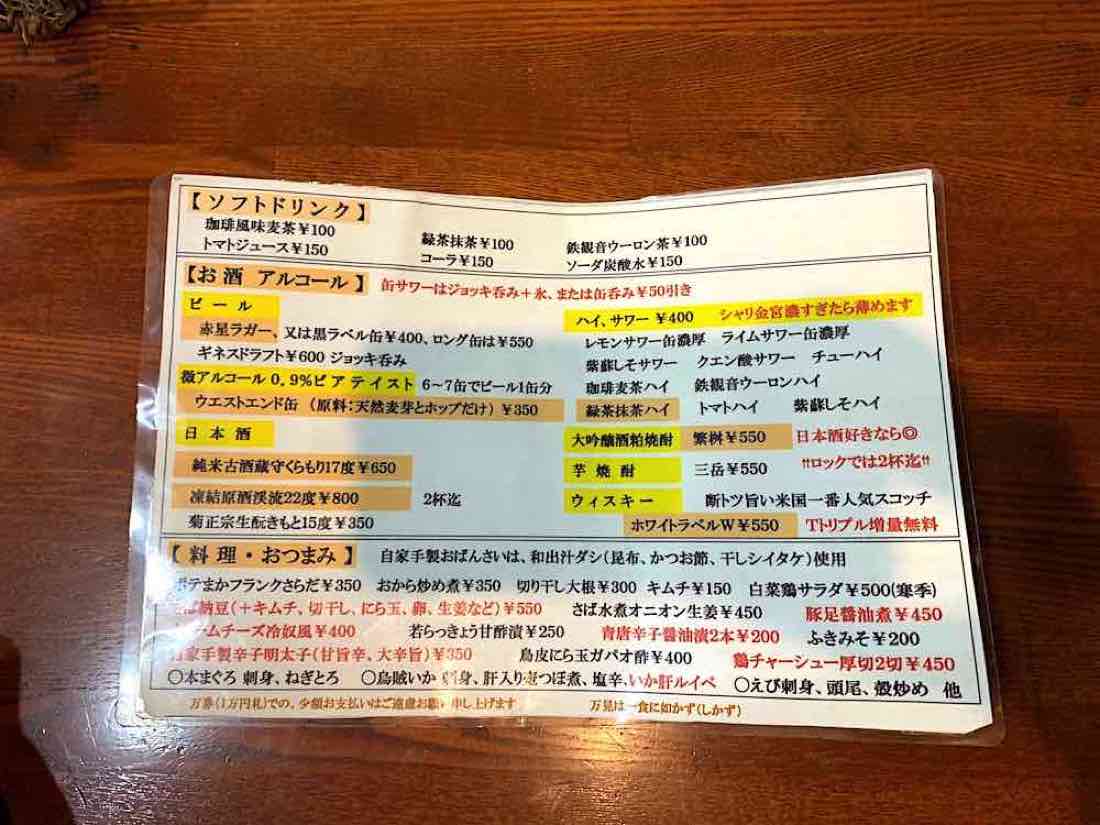 【ソフトドリンク】
珈琲風味麦茶￥100 緑茶抹茶￥100 鉄観音ウーロン茶￥100
トマトジュース￥150 コーラ￥150 ソーダ炭酸水￥150
【お酒 アルコール】 缶サワーはジョッキ呑み＋氷、または缶呑み￥50引き
ビール
赤星ラガー、又は黒ラベル缶￥400、ロング缶は￥550
ギネスドラフト￥600 ジョッキ呑み
微アルコール 0.9％ビアテイスト 6～7缶でビール1缶分
ウエストエンド缶 (原料:天然麦芽とホップだけ) ￥350
日本酒
純米古酒蔵守くらもり17度￥650
凍結原酒渓流22度￥800 2杯迄
菊正宗生酛きもと15度￥350
ハイ、サワー ￥400 シャリ金宮濃すぎたら薄めます
レモンサワー缶濃厚 ライムサワー缶濃厚
紫蘇しそサワー クエン酸サワー チューハイ
珈琲麦茶ハイ 鉄観音ウーロンハイ
緑茶抹茶ハイ トマトハイ 紫蘇しそハイ
大吟醸酒粕焼酎 繁桝￥550 日本酒好きなら◎
芋焼酎 三岳￥550 !!ロックでは2杯迄!!
ウィスキー 断トツ旨い米国一番人気スコッチ
ホワイトラベルW￥550 Tトリプル増量無料
【料理・おつまみ】 自家手製おばんさいは、和出汁ダシ(昆布、かつお節、干しシイタケ)使用
ポテまかフランクさらだ￥350 おから炒め煮￥350 切り干し大根￥300 キムチ￥150 白菜鶏サラダ￥500(寒季)
納豆(＋キムチ、切干し、にら玉、卵、生姜など)￥550 さば水煮オニオン生姜￥450 豚足醤油煮￥450
ームチーズ冷奴風￥400 若らっきょう甘酢漬￥250 青唐辛子醤油漬2本￥200 ふきみそ￥200
自家手製辛子明太子(甘旨辛、大辛旨)￥350 鳥皮にら玉ガパオ酢￥400 鶏チャーシュー厚切2切￥450
〇本まぐろ 刺身、ねぎとろ 〇烏賊いか 刺身、肝入り つぼ煮、塩辛、いか肝ルイベ 〇えび刺身、頭尾、殻炒め 他
万券(1万円札)での、少額お支払いはご遠慮お願い申し上げます 万見は一食に如かず(しかず)